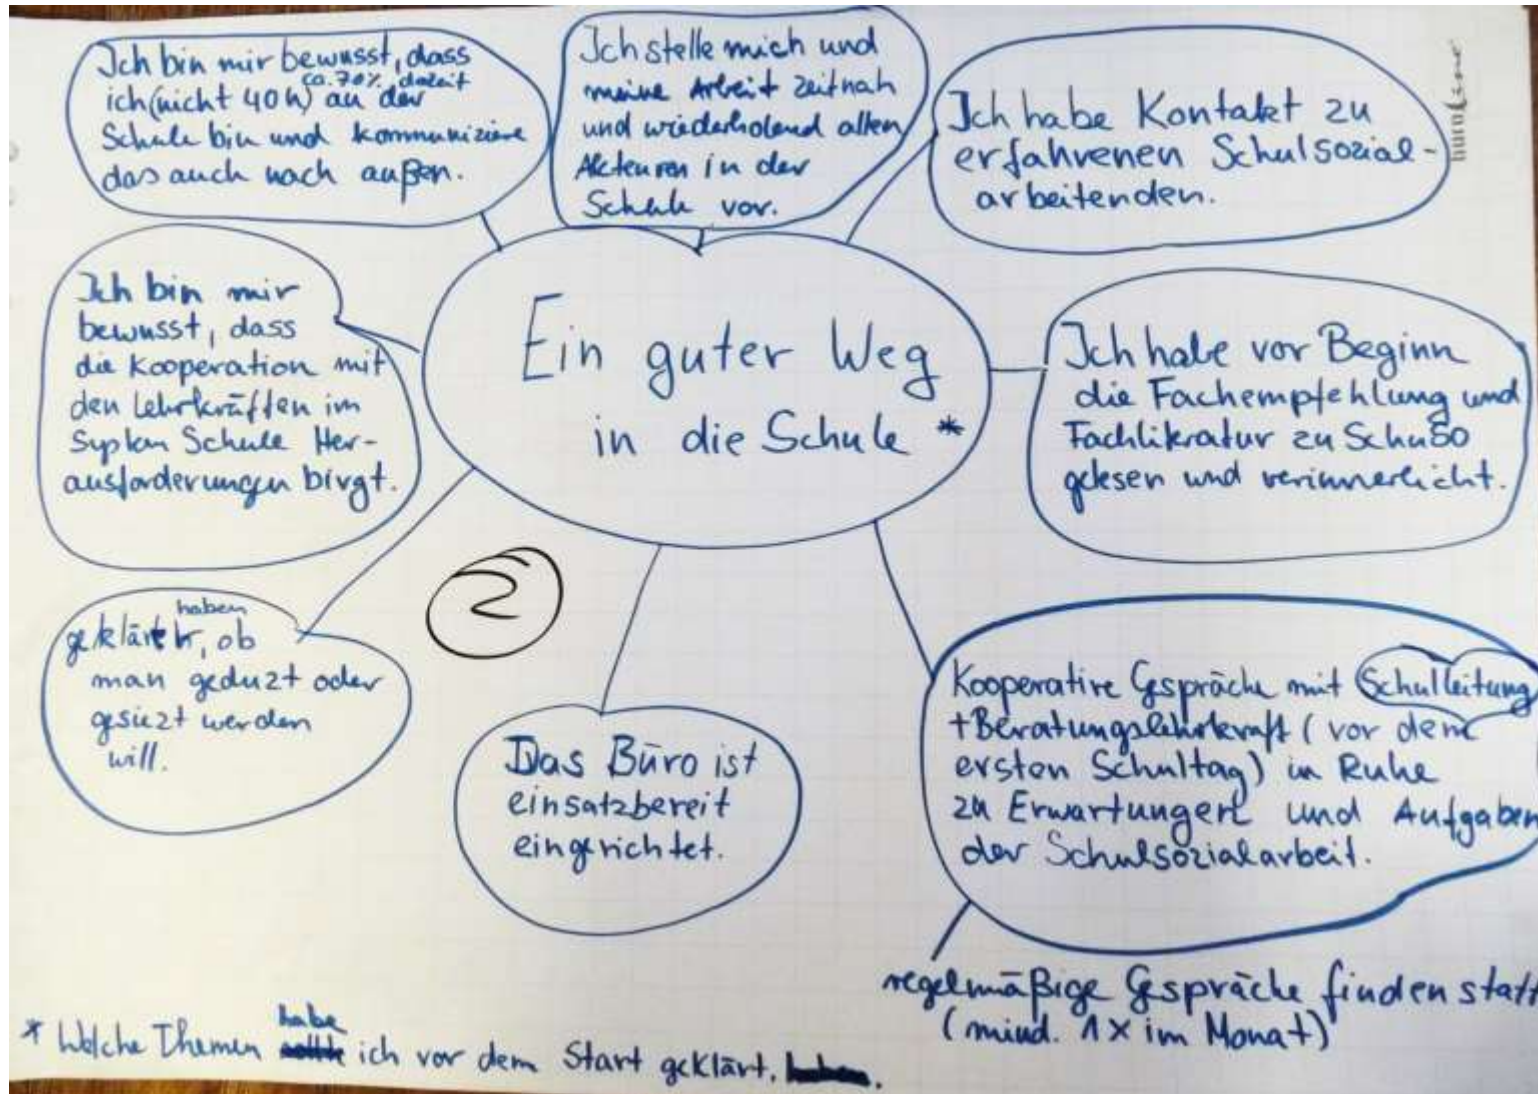 Ich bin mir bewusst, dass
ca. 70% derzeit
ich (nicht 40 h) an der
Schule bin und kommuniziere
das auch nach außen.
Ich stelle mich und
meine Arbeit zeitnah
und wiederholend allen
Akteuren in der
Schule vor.
Ich habe Kontakt zu
erfahrenen Schulsozial-
arbeitenden.
Ich bin mir
bewusst, dass
die Kooperation mit
den Lehrkräften im
System Schule Her-
ausforderungen birgt.
Ein guter Weg
in die Schule *
Ich habe vor Beginn
die Fachempfehlung und
Fachliteratur zu SchuSo
gelesen und verinnerlicht.
2
haben
geklärt, ob
man geduzt oder
gesiezt werden
will.
Das Büro ist
einsatzbereit
eingerichtet.
Kooperative Gespräche mit Schulleitung
+ Beratungslehrkraft (vor dem
ersten Schultag) in Ruhe
zu Erwartungen und Aufgaben
der Schulsozialarbeit.
regelmäßige Gespräche finden statt
(mind. 1x im Monat)
habe
* Welche Themen ich vor dem Start geklärt.